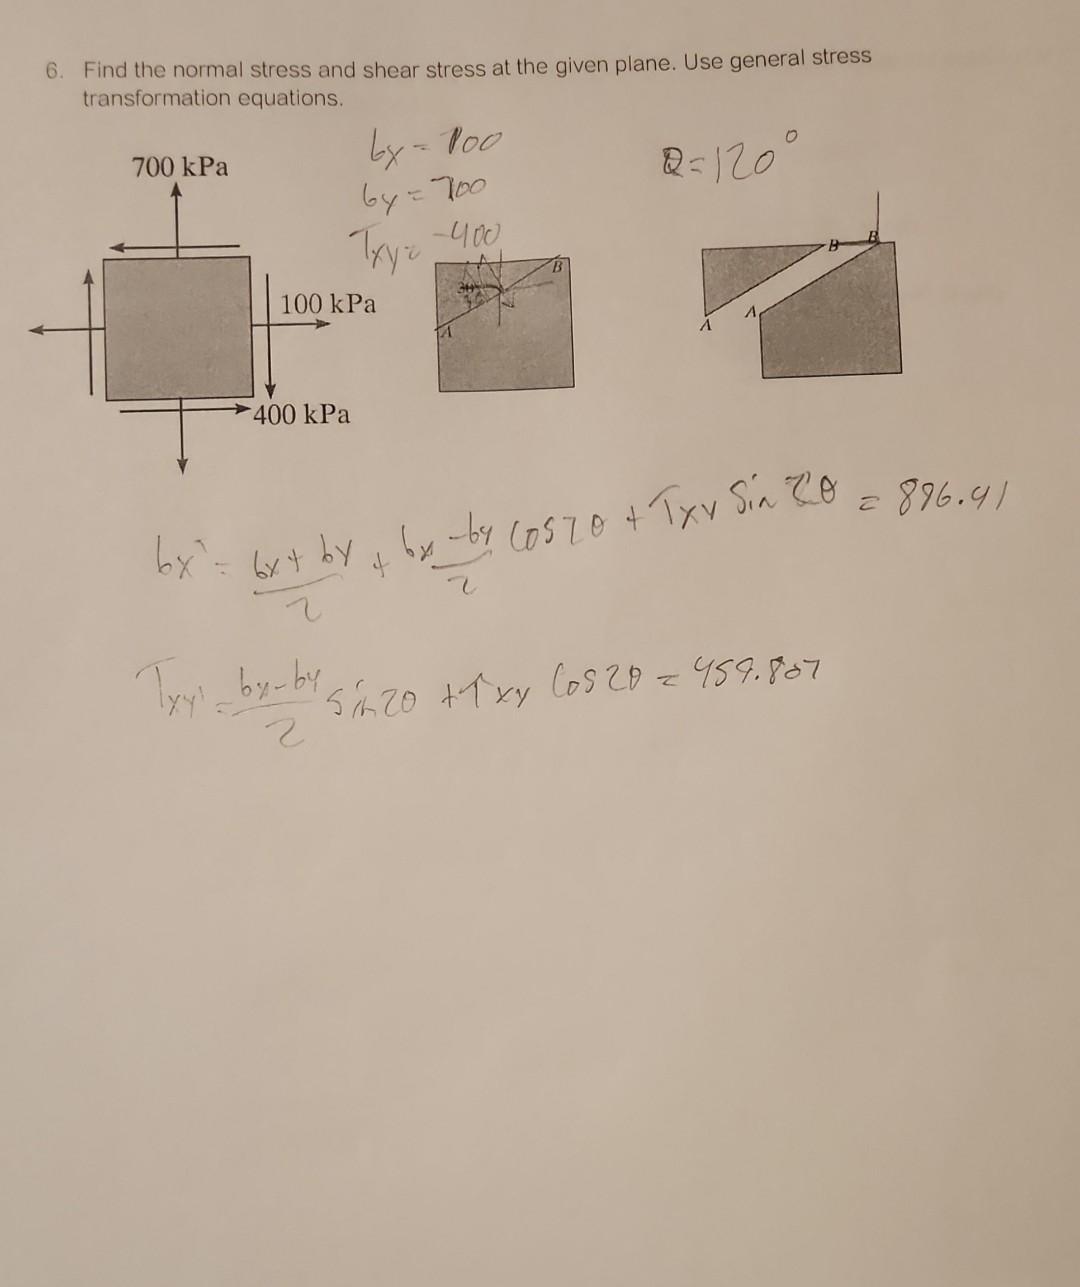 6. Find the normal stress and shear stress at the given plane. Use general stress
transformation equations.
700 kPa
100 kPa
400 kPa
σx = 100
σy = 700
Txy = -400
θ = 120°
B
A
B
B
A
A
σx' = σx + σy / 2 + σx - σy / 2 cos2θ + Txy Sin 2θ = 896.41
Txy' = σx - σy / 2 sin2θ + Txy Cos2θ = 459.807